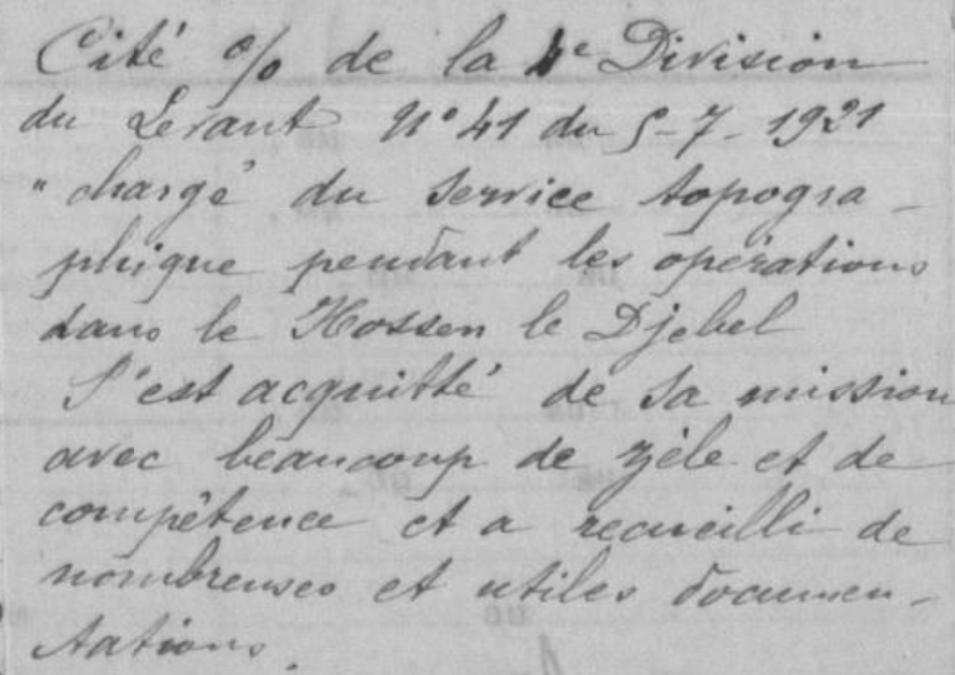 Cité o/o de la 4e Division
du Levant N° 41 du 5-7-1921
" chargé du service topogra-
phique pendant les opérations
dans le Hossen le Djebel
S'est acquitté de sa mission
avec beaucoup de zèle et de
compétence et a recueilli de
nombreuses et utiles documen-
tations.